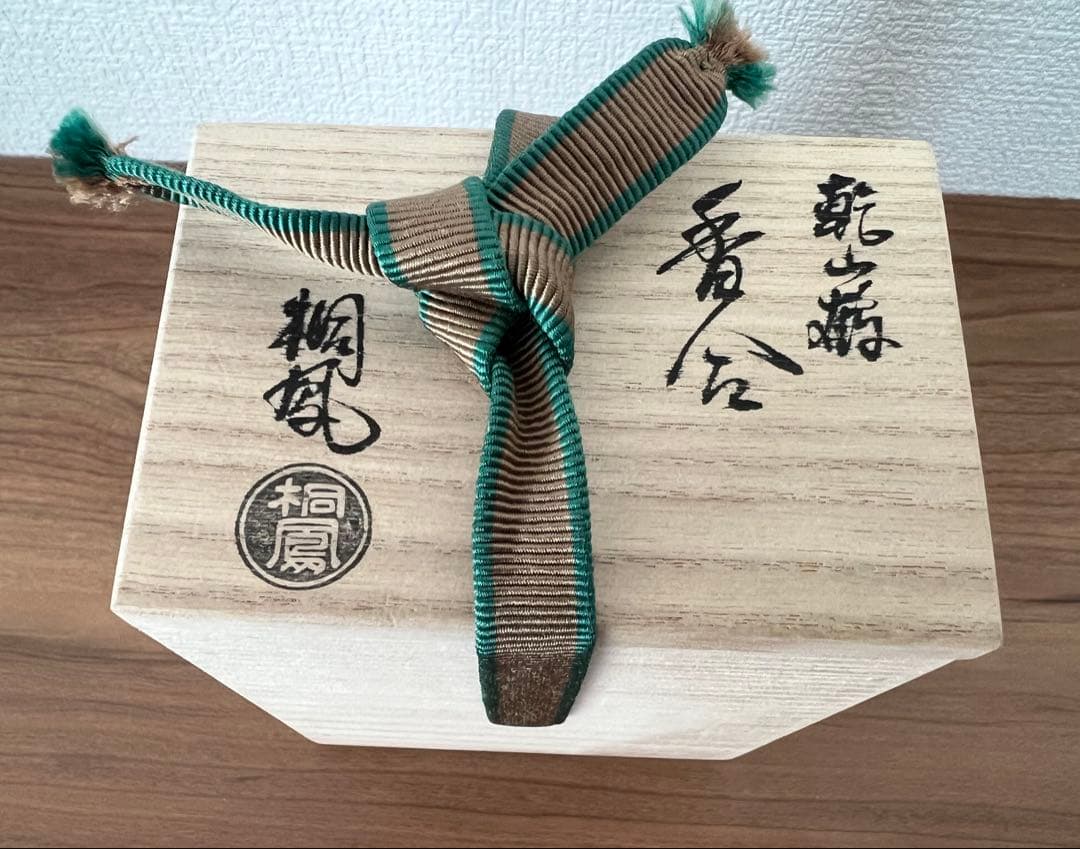 乾山
香合
桐鳳
桐鳳